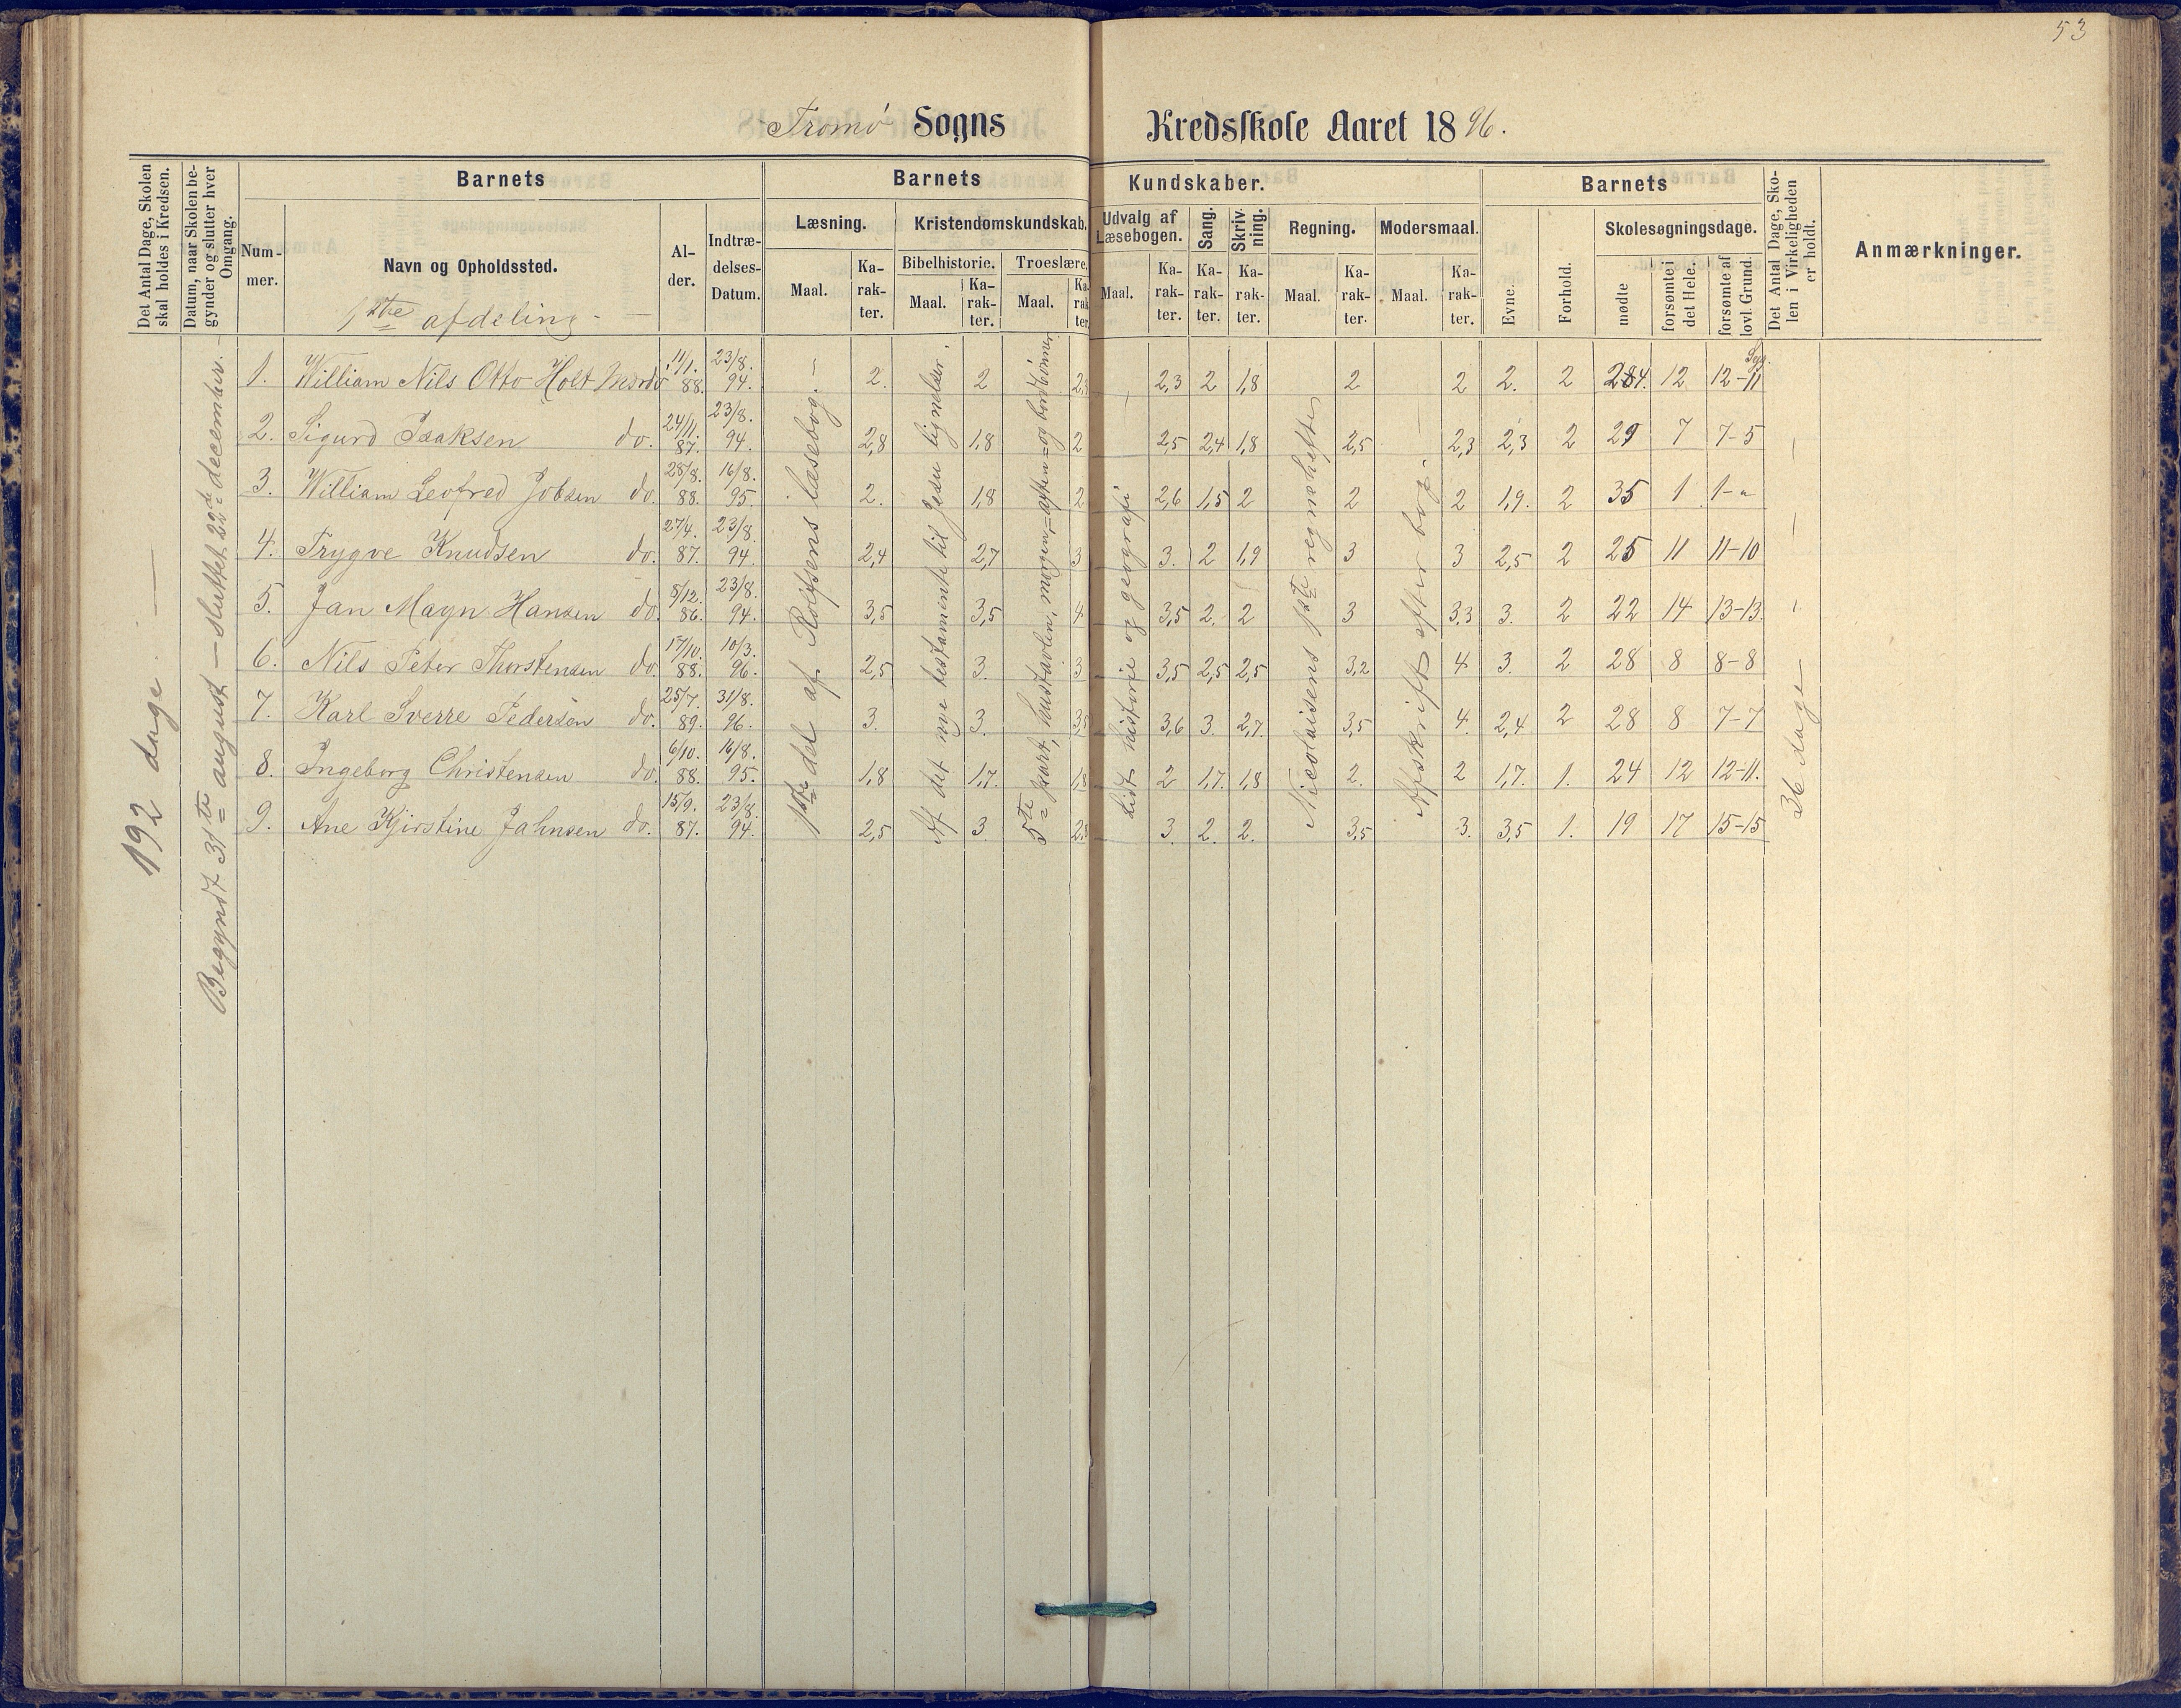 53
Tromø Sogns Kredsskole Aaret 1896.
Det Antal Dage, Skolen skal holdes i Kredsen.
Datum, naar Skolen begynder og slutter hver Omgang.
Barnets
Nummer.
Navn og Opholdssted.
Alder.
Indtrædelses-Datum.
Barnets Kundskaber.
Læsning. Maal. Karakter.
Kristendomskundskab.
Bibelhistorie. Maal. Karakter.
Troeslære. Maal. Karakter.
Udvalg af Læsebogen. Maal. Karakter.
Sang. Karakter.
Skrivning. Karakter.
Regning. Maal. Karakter.
Modersmaal. Maal. Karakter.
Barnets
Evne.
Forhold.
Skolesøgningsdage.
mødte
forsømte i det Hele.
forsømte af lovl. Grund.
Det Antal Dage, Skolen i Virkeligheden er holdt.
Anmærkninger.
1ste afdeling.
192 dage
Begyndt 31te august — sluttet 22de december.
1ste del af Rolfsens læsebog.
Af det nye testamente til Jesu lignelser.
5te part, hustavlen, morgen= aften= og bordbønner
Lidt historie og geografi
Nicolaisens 1ste regnehefte
Afskrift efter bog.
36 dage
1. William Nils Otto Holt Mærdø 11/1. 88. 23/8. 94. 2. 2 2,3 2,3 2 1,8 2 2 2. 2 24. 12 12-11 Syg.
2. Sigurd Isaksen do. 24/11. 87. 23/8. 94. 2,8 1,8 2 2,5 2,4 1,8 2,5 2,3 2,3 2 29 7 7-5
3. William Leofred Jobsen do. 28/8. 88. 16/8. 95. 2. 1,8 2 2,6 1,5 2 2 2 1,9. 2 35 1 1-"
4. Trygve Knudsen do. 27/4. 87. 23/8. 94. 2,4 2,7 3 3. 2 1,9 3 3 2,5 2 25 11 11-10
5. Jan Mayn Hansen do. 8/12. 86. 23/8. 94. 3,5 3,5 4 3,5 2. 2 3 3,3 3. 2 22 14 13-13.
6. Nils Peter Thorstensen do. 17/10. 88. 10/3. 96. 2,5 3. 3 3,5 2,5 2,5 3,2 4 3. 2 28 8 8-8
7. Karl Sverre Pedersen do. 25/7. 89. 31/8. 96. 3. 3. 3,5 3,6 3. 2,7. 3,5 4. 2,4 2 28 8 7-7
8. Ingeborg Christensen do. 6/10. 88. 16/8. 95. 1,8 1,7. 1,8 2 1,7. 1,8 2. 2 1,7. 1. 24 12 12-11.
9. Ane Kjirstine Jahnsen do. 15/9. 87. 23/8. 94. 2,5 3. 2,8 3. 2. 2. 3,5 3. 3,5 1. 19 17 15-15